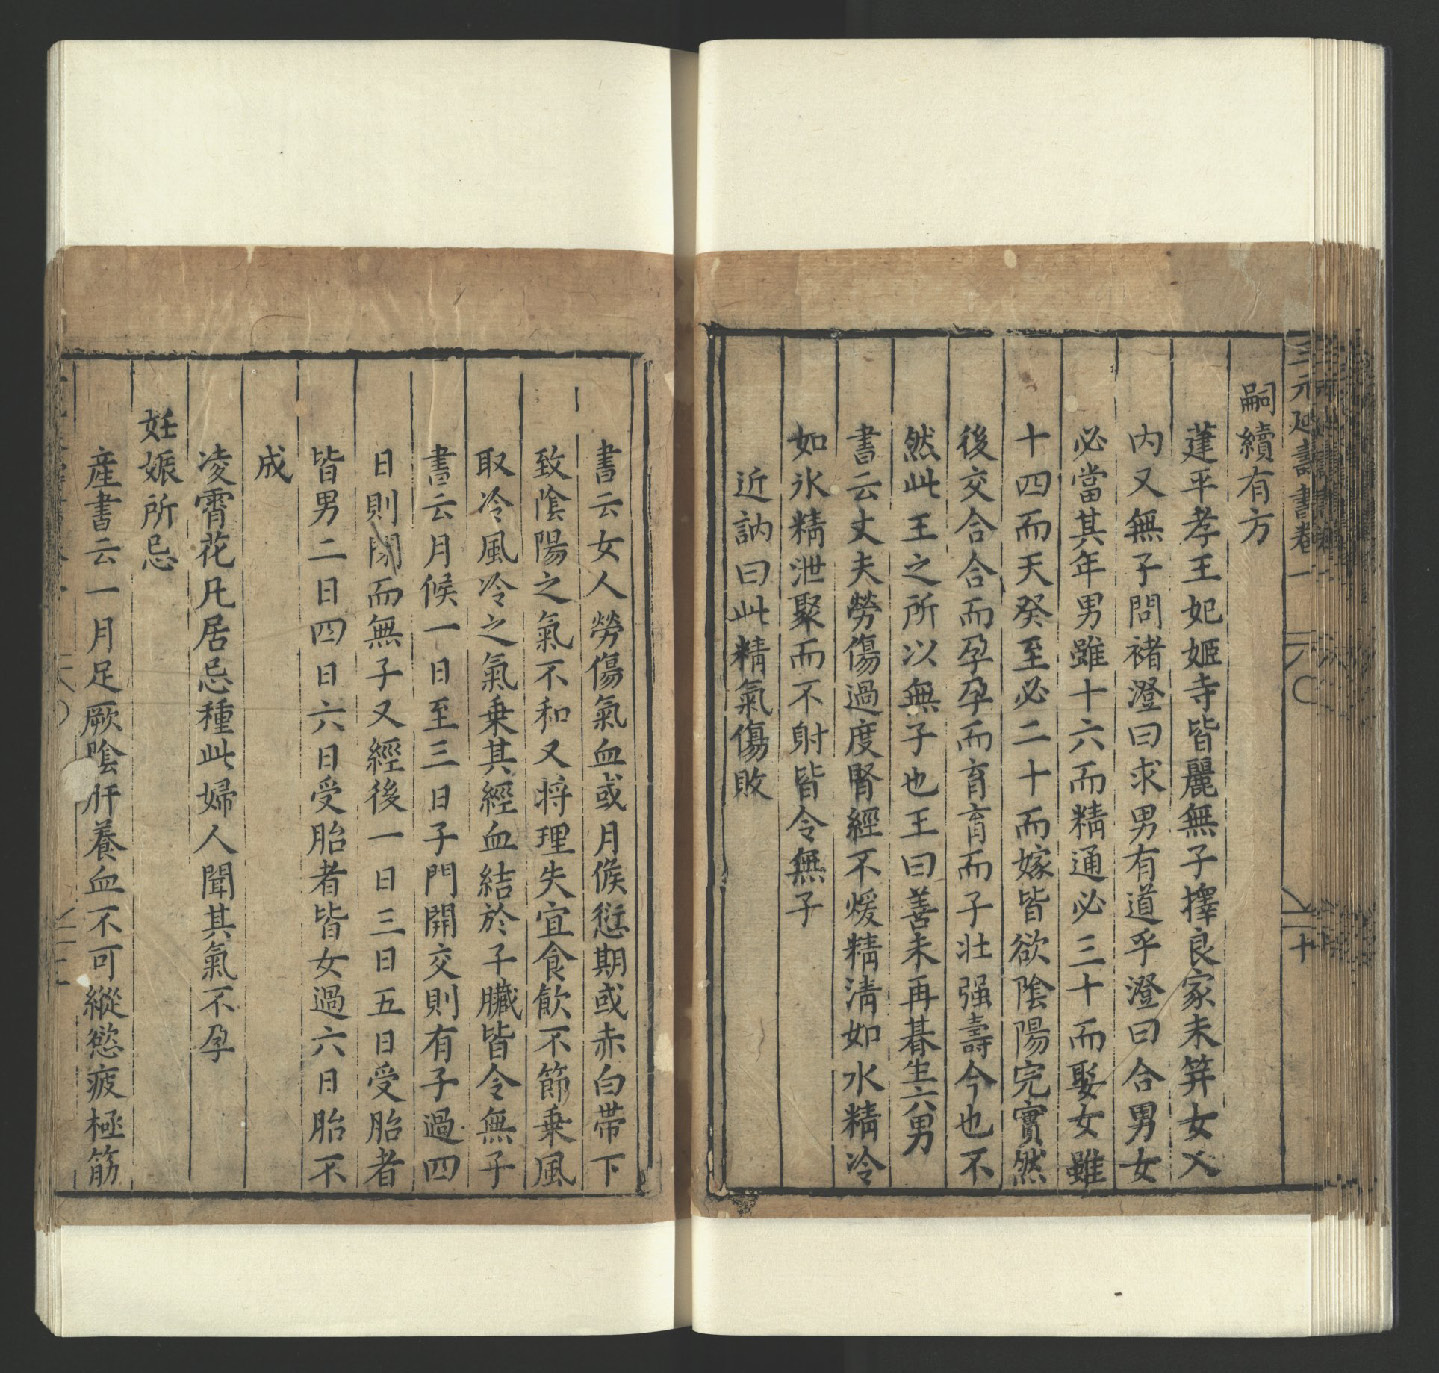 三元延壽書卷一
十
嗣續有方
蓬平孝王妃姬寺皆麗無子擇良家未筓女入
內又無子問褚澄曰求男有道乎澄曰合男女
必當其年男雖十六而精通必三十而娶女雖
十四而天癸至必二十而嫁皆欲隂陽完實然
後交合合而孕孕而育育而子壯强壽今也不
然此王之所以無子也王曰善未再朞生六男
書云丈夫勞傷過度腎經不煖精淸如水精冷
如氷精泄聚而不射皆令無子
近訥曰此精氣傷敗
書云女人勞傷氣血或月候愆期或赤白帶下
致隂陽之氣不和又將理失宜食飮不節乗風
取冷風冷之氣乗其經血結於子臟皆令無子
書云月候一日至三日子門開交則有子過四
日則閉而無子又經後一日三日五日受胎者
皆男二日四日六日受胎者皆女過六日胎不
成
凌霄花凡居忌種此婦人聞其氣不孕
妊娠所忌
産書云一月足厥隂肝養血不可縱慾疲極筋